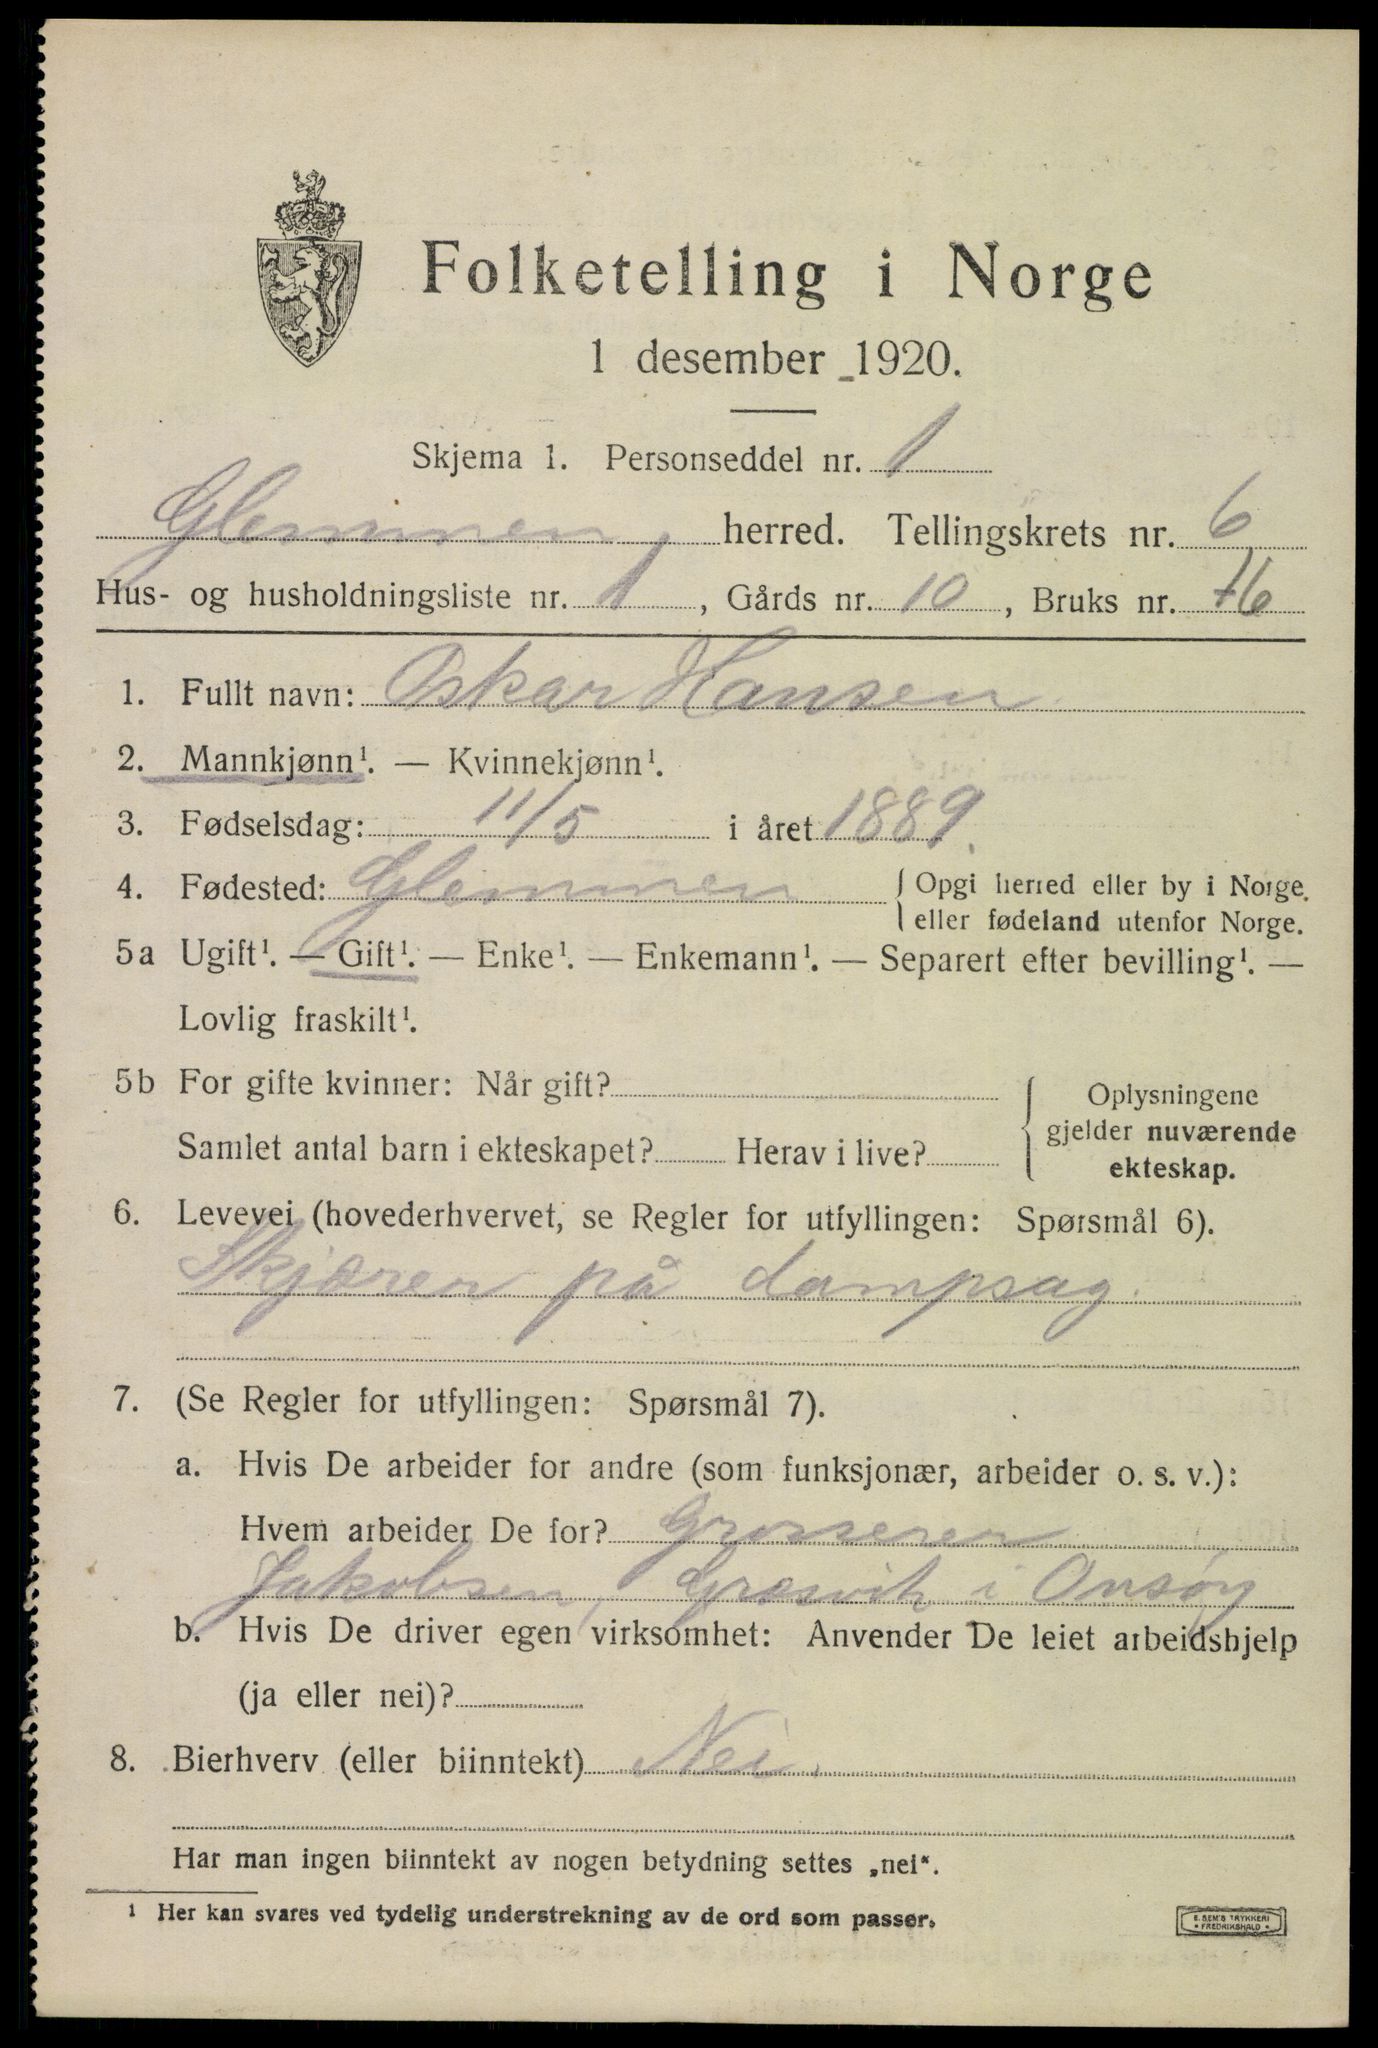 Folketelling i Norge
1 desember 1920.
Skjema 1. Personseddel nr. 1
Glemmen herred. Tellingskrets nr. 6
Hus- og husholdningsliste nr. 1, Gårds nr. 10, Bruks nr. 76
1. Fullt navn: Oskar Hansen
2. Mannkjønn¹. — Kvinnekjønn¹.
3. Fødselsdag: 11/5 i året 1889.
4. Fødested: Glemmen { Opgi herred eller by i Norge,
eller fødeland utenfor Norge.
5a Ugift¹. — Gift¹. — Enke¹. — Enkemann¹. — Separert efter bevilling¹. —
Lovlig fraskilt¹.
5b For gifte kvinner: Når gift?
Samlet antal barn i ekteskapet? Herav i live?
{ Oplysningene
gjelder nuværende
ekteskap.
6. Levevei (hovederhvervet, se Regler for utfyllingen: Spørsmål 6).
Skjærer på dampsag.
7. (Se Regler for utfyllingen: Spørsmål 7).
a. Hvis De arbeider for andre (som funksjonær, arbeider o. s. v.):
Hvem arbeider De for? Grosserer
Jakobsen, Græsvik i Onsøy
b. Hvis De driver egen virksomhet: Anvender De leiet arbeidshjelp
(ja eller nei)?
8. Bierhverv (eller biinntekt) Nei.
Har man ingen biinntekt av nogen betydning settes „nei“.
¹ Her kan svares ved tydelig understrekning av de ord som passer.
E. SEM'S TRYKKERI
• FREDRIKSHALD •